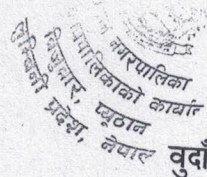 नगरपालिका
पालिकाको कार्या
बिजुवार, प्यूठान
लुम्बिनी प्रदेश, नेपाल
वुदाँ